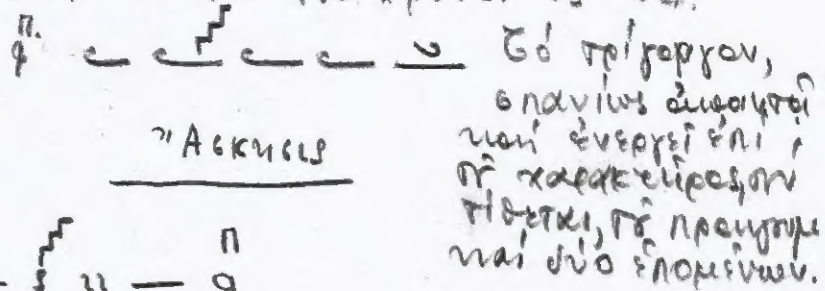 Π.
Τό τρίγοργον,
σπανίως ἀπαντᾷ
καί ἐνεργεῖ ἐπί
τοῦ χαρακτῆρος, οὗ
τίθεται, τοῦ προηγουμ
καί δύο ἑπομένων.
Ἄσκησις
π